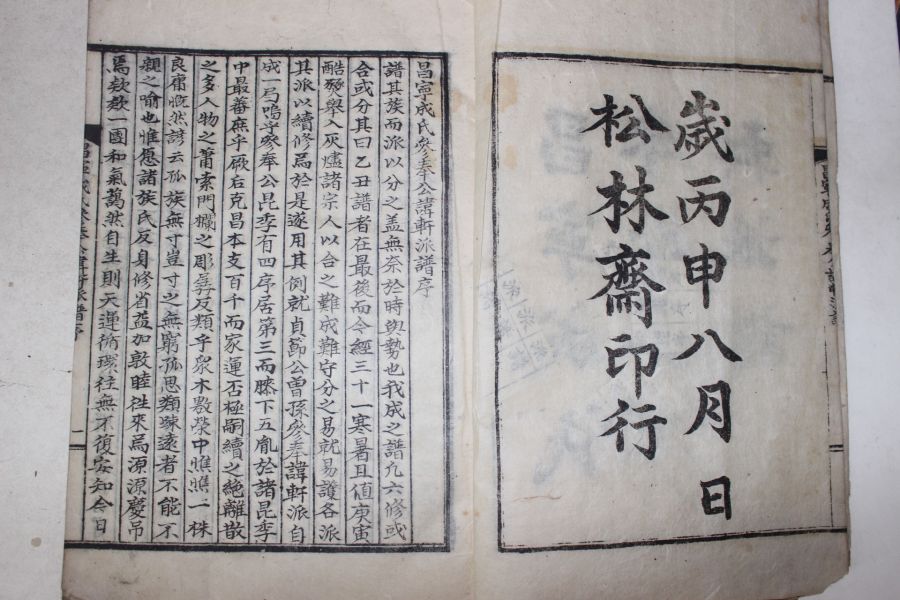 歲丙申八月 日
松林齋印行
昌寧成氏參奉公諱軒派譜序
譜其族而派以分之盖無奈於時與勢也我成之譜凡六修或
合或分其曰乙丑譜者在最後而今經三十一寒暑且值庚寅
酷發舉入灰燼諸宗人以合之難成難守分之易就易護各派
其派以續修焉於是遂用其例就貞節公曾孫參奉諱軒派自
成一局嗚乎參奉公昆季有四序居第三而膝下五胤於諸昆季
中最蕃庶乎厥右克昌本支百千而家運否極嗣續之絶離散
之多人物之蕭索門欄之彫弊反類乎衆木敷榮中憔憔一株
良庸慨然諺云孤族無寸豈寸之無窮孤思類踈遠者不能不
親之喻也惟愿諸族氏反身修省益加敦睦徃來焉源源慶吊
焉欸欸一團和氣藹然自生則天運循環往無不復安知今日